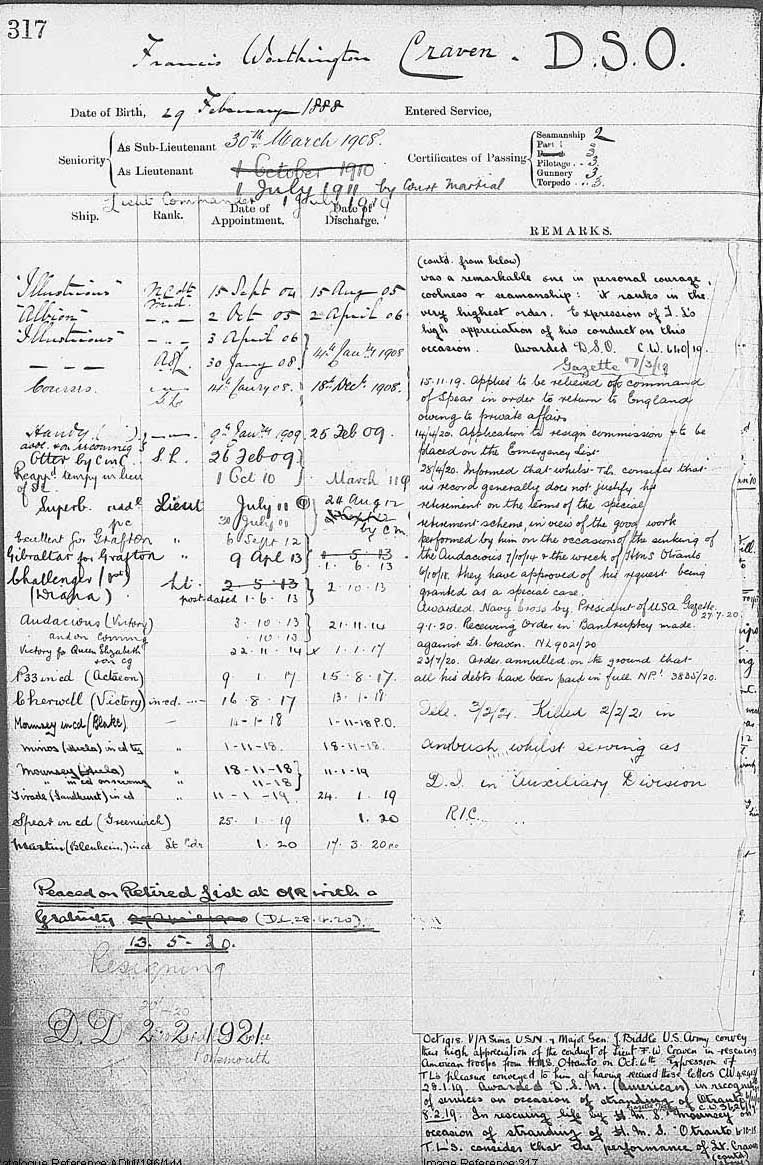 317
Francis Worthington Craven. D.S.O.
Date of Birth, 29 February 1888 Entered Service,
Seniority As Sub-Lieutenant 30th March 1908.
As Lieutenant 1 October 1910
1 July 1911 by Court Martial
Lieut Commander 1 July 1919
Certificates of Passing
Seamanship 2
Part 3
Pilotage .. 3
Gunnery 3
Torpedo .. 3.
Ship. Rank. Date of Appointment. Date of Discharge. REMARKS.
"Illustrious" 15 Sept 04 15 Aug 05
"Albion" Mid. 2 Oct 05 2 April 06
"Illustrious" 3 April 06
30 Jany 08 1908
Courses. 14th Jany 08. 18th Decr 1908.
9th Jany 1909 25 Feb 09.
Otter by S.L. 26 Feb 09
1 Oct 10 March 11
of S.L.
Superb Lieut July 11 24 Aug 12
30 July 11 by C.M.
Excellent for Grafton " 6 Sept 12
Gibraltar for Grafton " 9 Apl 13 1. 5. 13
1. 6. 13
Challenger Lt. 2. 5. 13 2. 10. 13
(Diana) post dated 1. 6. 13
Audacious (Victory) 3. 10. 13 21. 11. 14
and on comming 10. 13
Victory for Queen Elizabeth 22. 11. 14 1. 1. 17
P33 in cd (Actaeon) 9 1 17 15. 8. 17.
Cherwell (Victory) in cd. 16. 8. 17 13. 1. 18
Mounsey in cd (Blake) 14-1-18 1-11-18 P.O.
Minos in cd ty " 1-11-18. 18-11-18.
Mounsey " 18-11-18 11-1-19
" 11-18
Tirade (Sandhurst) in cd " 11-1-19. 24. 1. 19
Spear in cd (Greenwich) 25. 1. 19 1. 20
(Blenheim) in cd Lt Cdr 1. 20 17. 3. 20
Placed on Retired List at O/R with a
Gratuity (D.L. 28.4.20).
13. 5. 20.
Resigning
D.D 2.2.1921
Portsmouth
(contd. from below)
was a remarkable one in personal courage,
coolness & seamanship: it ranks in the
very highest order. Expression of T.L's
high appreciation of his conduct on this
occasion. Awarded D.S.O. C.W. 640/19.
Gazette /3/19
15.11.19. Applies to be relieved of command
of Spear in order to return to England
owing to private affairs
14/4/20. Application to resign commission & to be
placed on the Emergency List.
28/4/20. Informed that whilst T.L. consider that
his record generally does not justify his
retirement on the terms of the special
retirement scheme, in view of the good work
performed by him on the occasions of the sinking of
the Audacious 27/10/14 & the wreck of HMS Otranto
6/10/18. they have approved of his request being
granted as a special case.
Awarded Navy Cross by President of USA Gazette
27.7.20.
9.1.20. Receiving Order in Bankruptcy made
against Lt. Craven. NL 9021/20
23/7/20. Order annulled on the ground that
all his debts have been paid in full NP. 3885/20.
Tele. 3/2/21. Killed 2/2/21 in
ambush whilst serving as
D.I. in Auxiliary Division
R.I.C.
Oct 1918. V/A Sims U.S.N. & Major Gen. J. Biddle U.S. Army convey
their high appreciation of the conduct of Lieut F.W. Craven in rescuing
American troops from H.M.S. Otranto on Oct. 6th. Expression of
T.L's pleasure conveyed to him at having received these letters CW
28.1.19. Awarded D.S.M. (American) in recogn
of services on occasion of stranding of Otranto
8.2.19. In rescuing life by H.M.S. Mounsey on
occasion of stranding of H.M.S. Otranto 6-10-18
T.L's. consider that the performance of Lt. Craven
(contd
Catalogue Reference:ADM/196/144 Image Reference:317